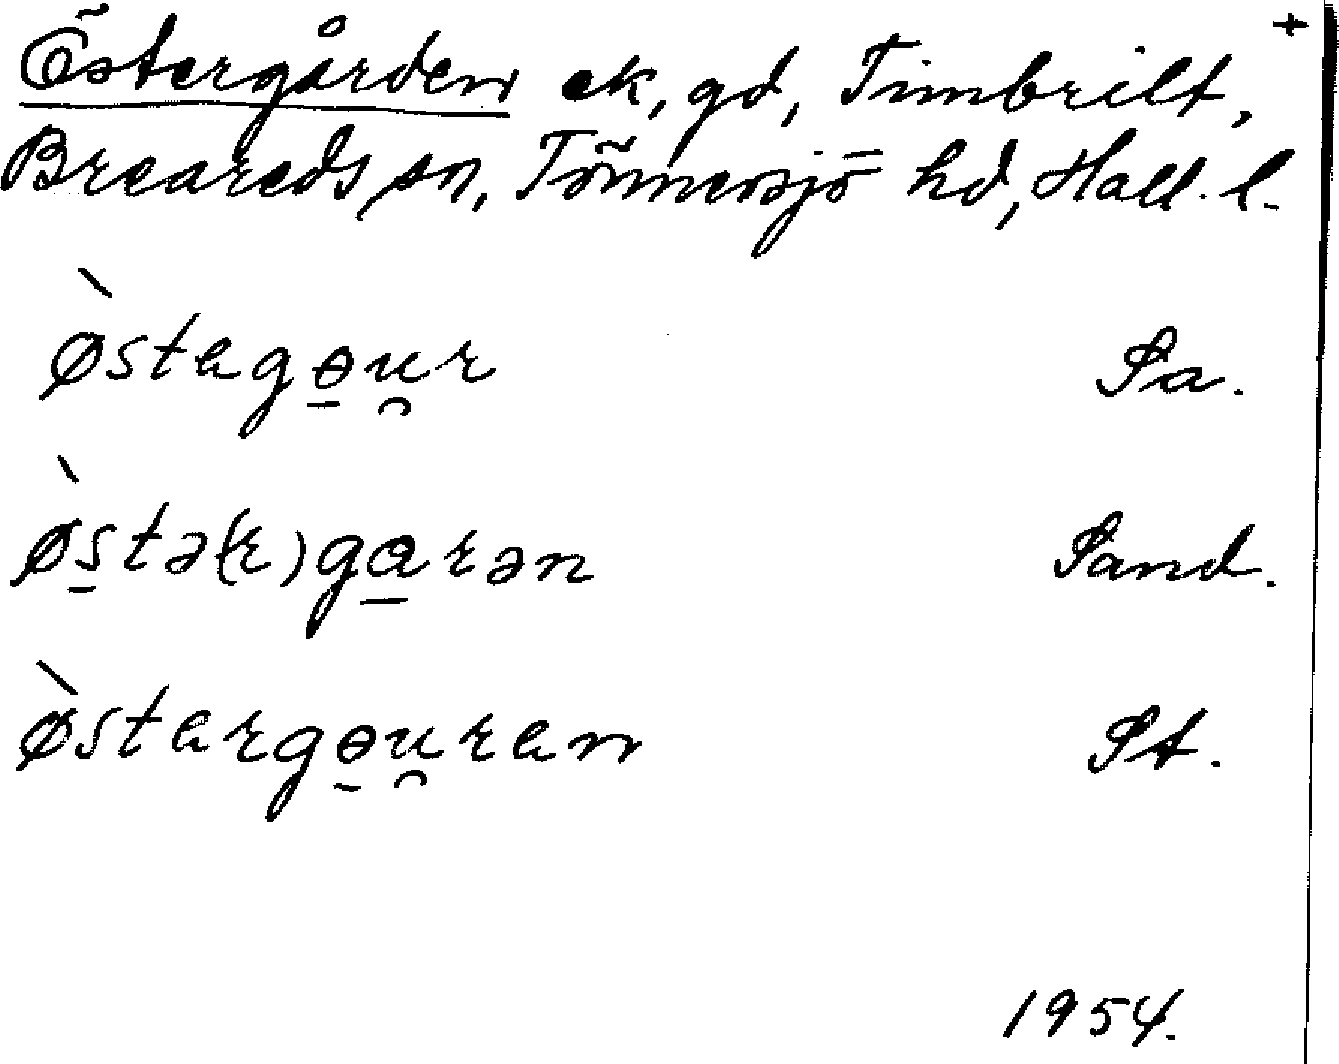 +
Östergården ek, gd, Timbrilt,
Breareds sn, Tönnersjö hd, Hall. l.
ø̀stagɵ̠u̯r Sa.
ø̀s̠tə(r)ga̠rən Sand.
ø̀stargɵ̠u̯ran St.
1954.